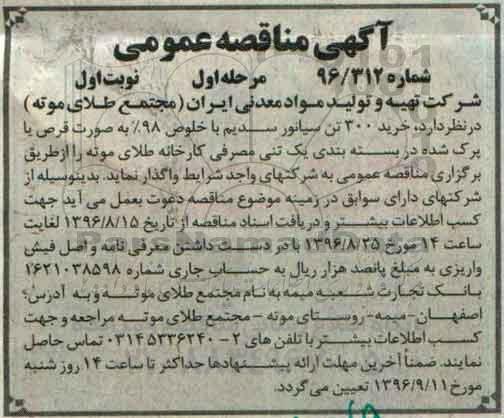 آگهی مناقصه عمومی
شماره ۹۶/۳۱۲ مرحله اول نوبت اول
شرکت تهیه و تولید مواد معدنی ایران (مجتمع طلای موته)
درنظر دارد، خرید ۳۰۰ تن سیانور سدیم با خلوص ۹۸٪ به صورت قرص یا
پرک شده در بسته بندی یک تنی مصرفی کارخانه طلای موته را ازطریق
برگزاری مناقصه عمومی به شرکتهای واجد شرایط واگذار نماید. بدینوسیله از
شرکتهای دارای سوابق در زمینه موضوع مناقصه دعوت بعمل می آید جهت
کسب اطلاعات بیشتر و دریافت اسناد مناقصه از تاریخ ۱۳۹۶/۸/۱۵ لغایت
ساعت ۱۴ مورخ ۱۳۹۶/۸/۲۵ با در دست داشتن معرفی نامه و اصل فیش
واریزی به مبلغ پانصد هزار ریال به حساب جاری شماره ۱۶۲۱۰۳۸۵۹۸
بانک تجارت شعبه میمه به نام مجتمع طلای موته و به آدرس:
اصفهان-میمه-روستای موته - مجتمع طلای موته مراجعه و جهت
کسب اطلاعات بیشتر با تلفن های ۲ - ۰۳۱۴۵۳۳۶۲۴۰ تماس حاصل
نمایند. ضمناً آخرین مهلت ارائه پیشنهادها حداکثر تا ساعت ۱۴ روز شنبه
مورخ ۱۳۹۶/۹/۱۱ تعیین می گردد.